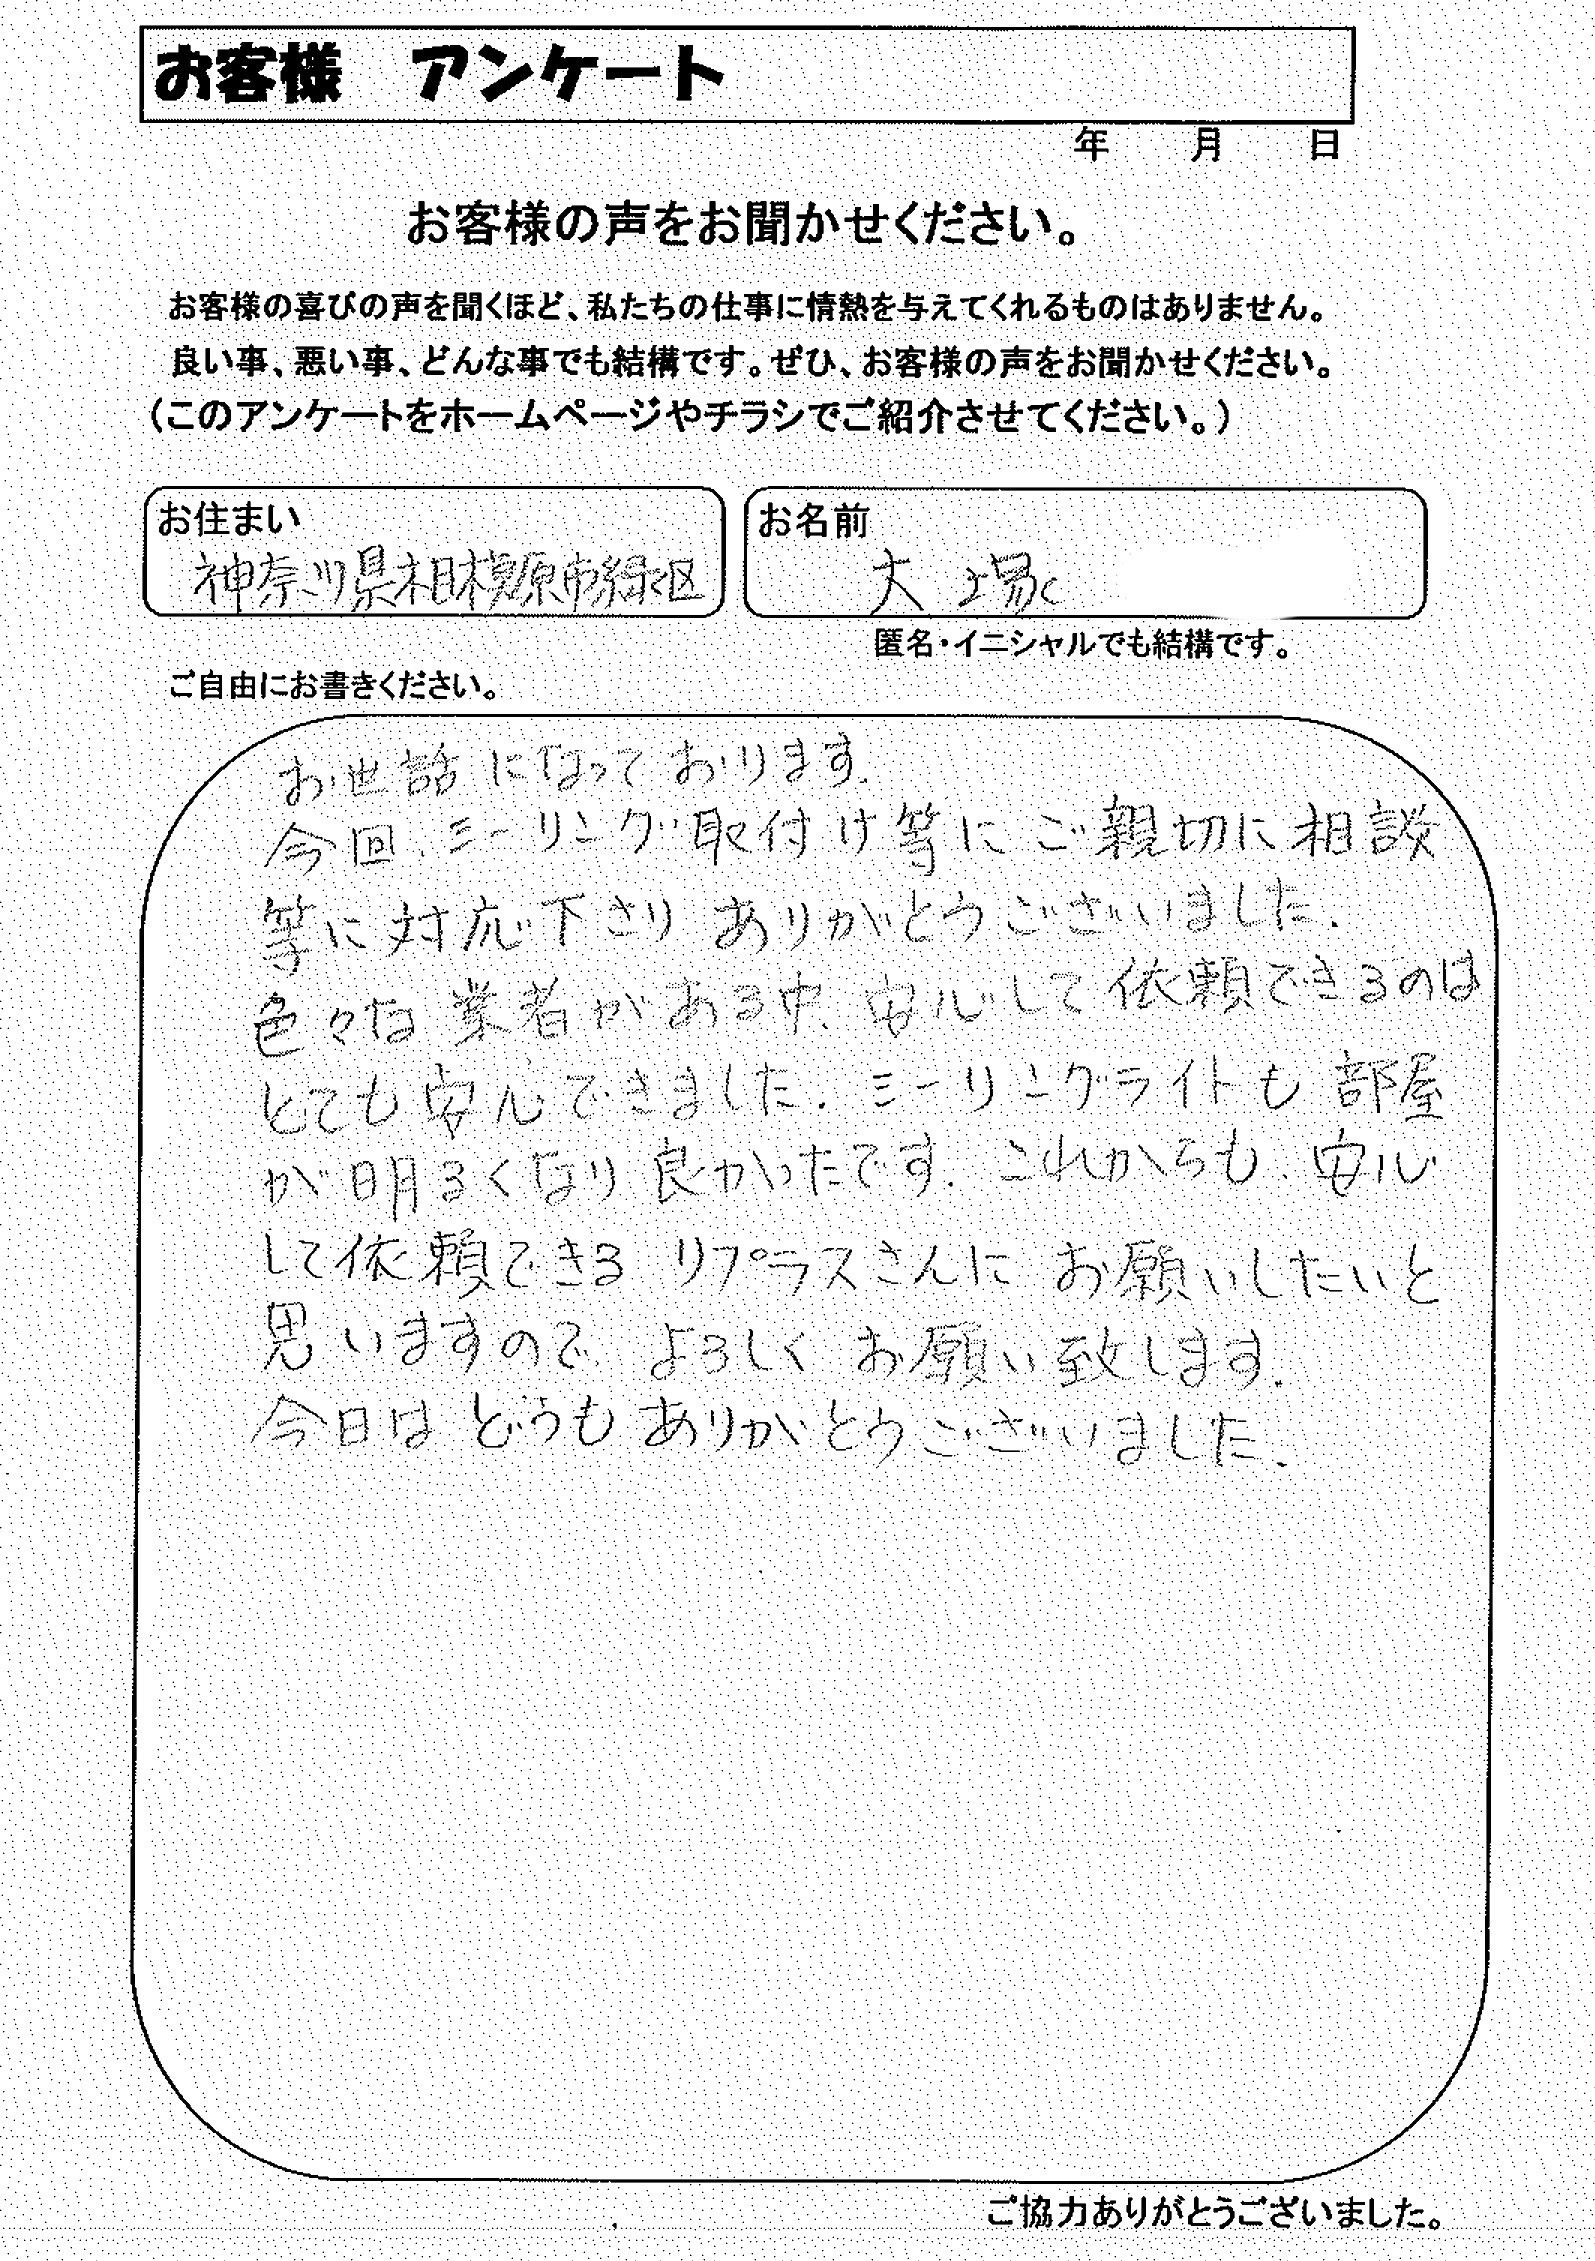 お客様　アンケート
年　月　日
お客様の声をお聞かせください。
お客様の喜びの声を聞くほど、私たちの仕事に情熱を与えてくれるものはありません。
良い事、悪い事、どんな事でも結構です。ぜひ、お客様の声をお聞かせください。
（このアンケートをホームページやチラシでご紹介させてください。）
お住まい
神奈川県相模原市緑区
お名前
大場
匿名・イニシャルでも結構です。
ご自由にお書きください。
お世話になっております.
今回、シーリング取付け等にご親切に相談
等に対応下さり ありがとうございました.
色々な業者がある中、安心して依頼できるのは
とても安心できました. シーリングライトも部屋
が明るくなり良かったです. これからも、安心
して依頼できる リプラスさんに お願いしたいと
思いますので、よろしく お願い致します.
今日は どうも ありがとうございました.
ご協力ありがとうございました。